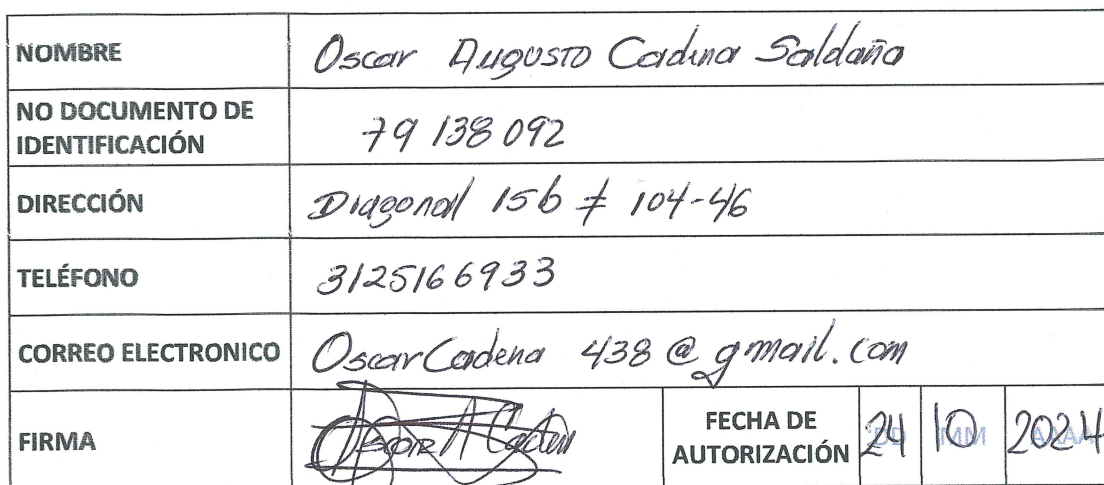 NOMBRE Oscar Augusto Cadena Saldaña
NO DOCUMENTO DE
IDENTIFICACIÓN 79 138 092
DIRECCIÓN Diagonal 15b # 104-46
TELÉFONO 3125166933
CORREO ELECTRONICO OscarCadena 438 @ gmail.com
FIRMA Oscar A Caden
FECHA DE
AUTORIZACIÓN 24 10 2024
DD MM AAAA